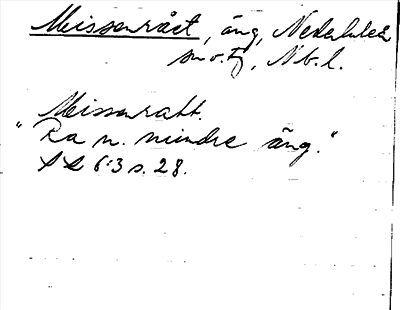 Meissenrået, äng, Nederluleå
sn o. tg, Nb. l.
Meissenratt.
"Ra n. mindre äng."
6:3 s. 28.